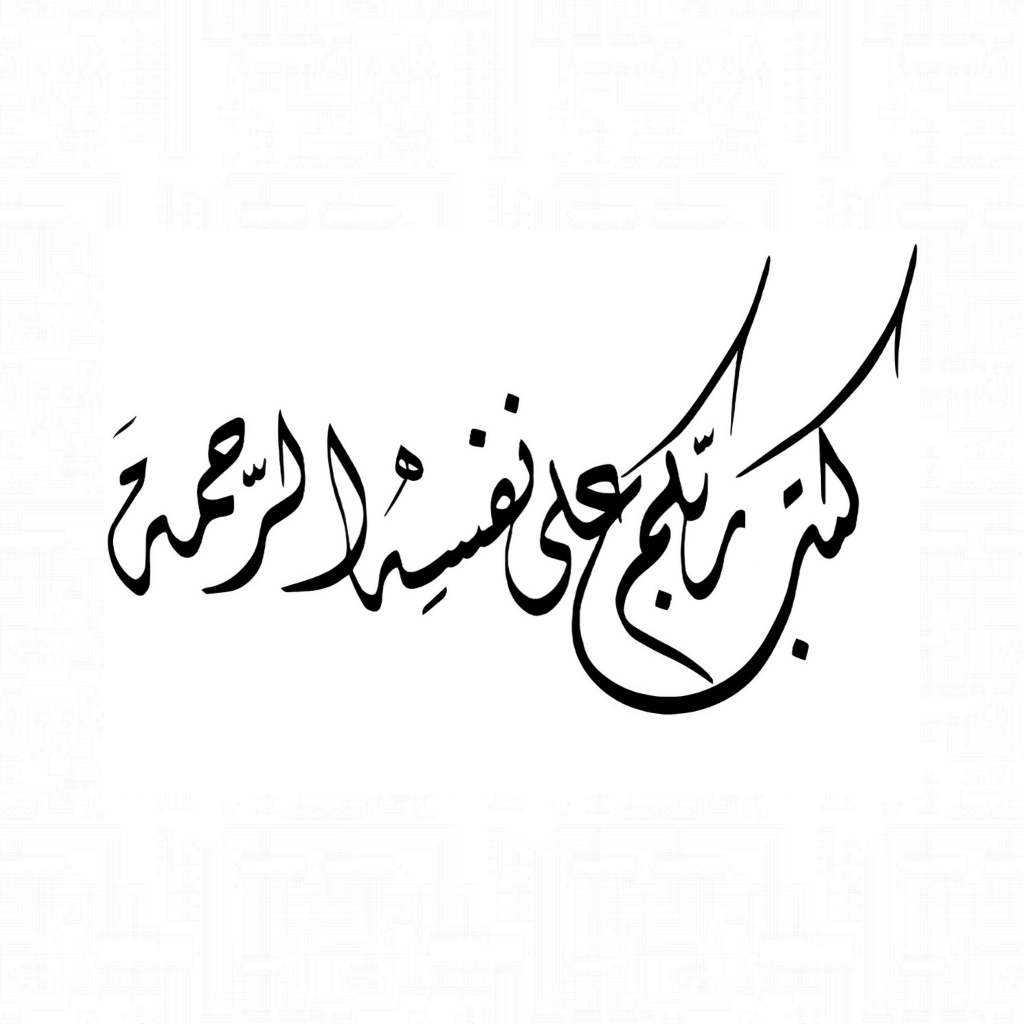 كتب ربّكم على نفسِهْ الرَّحمةَ